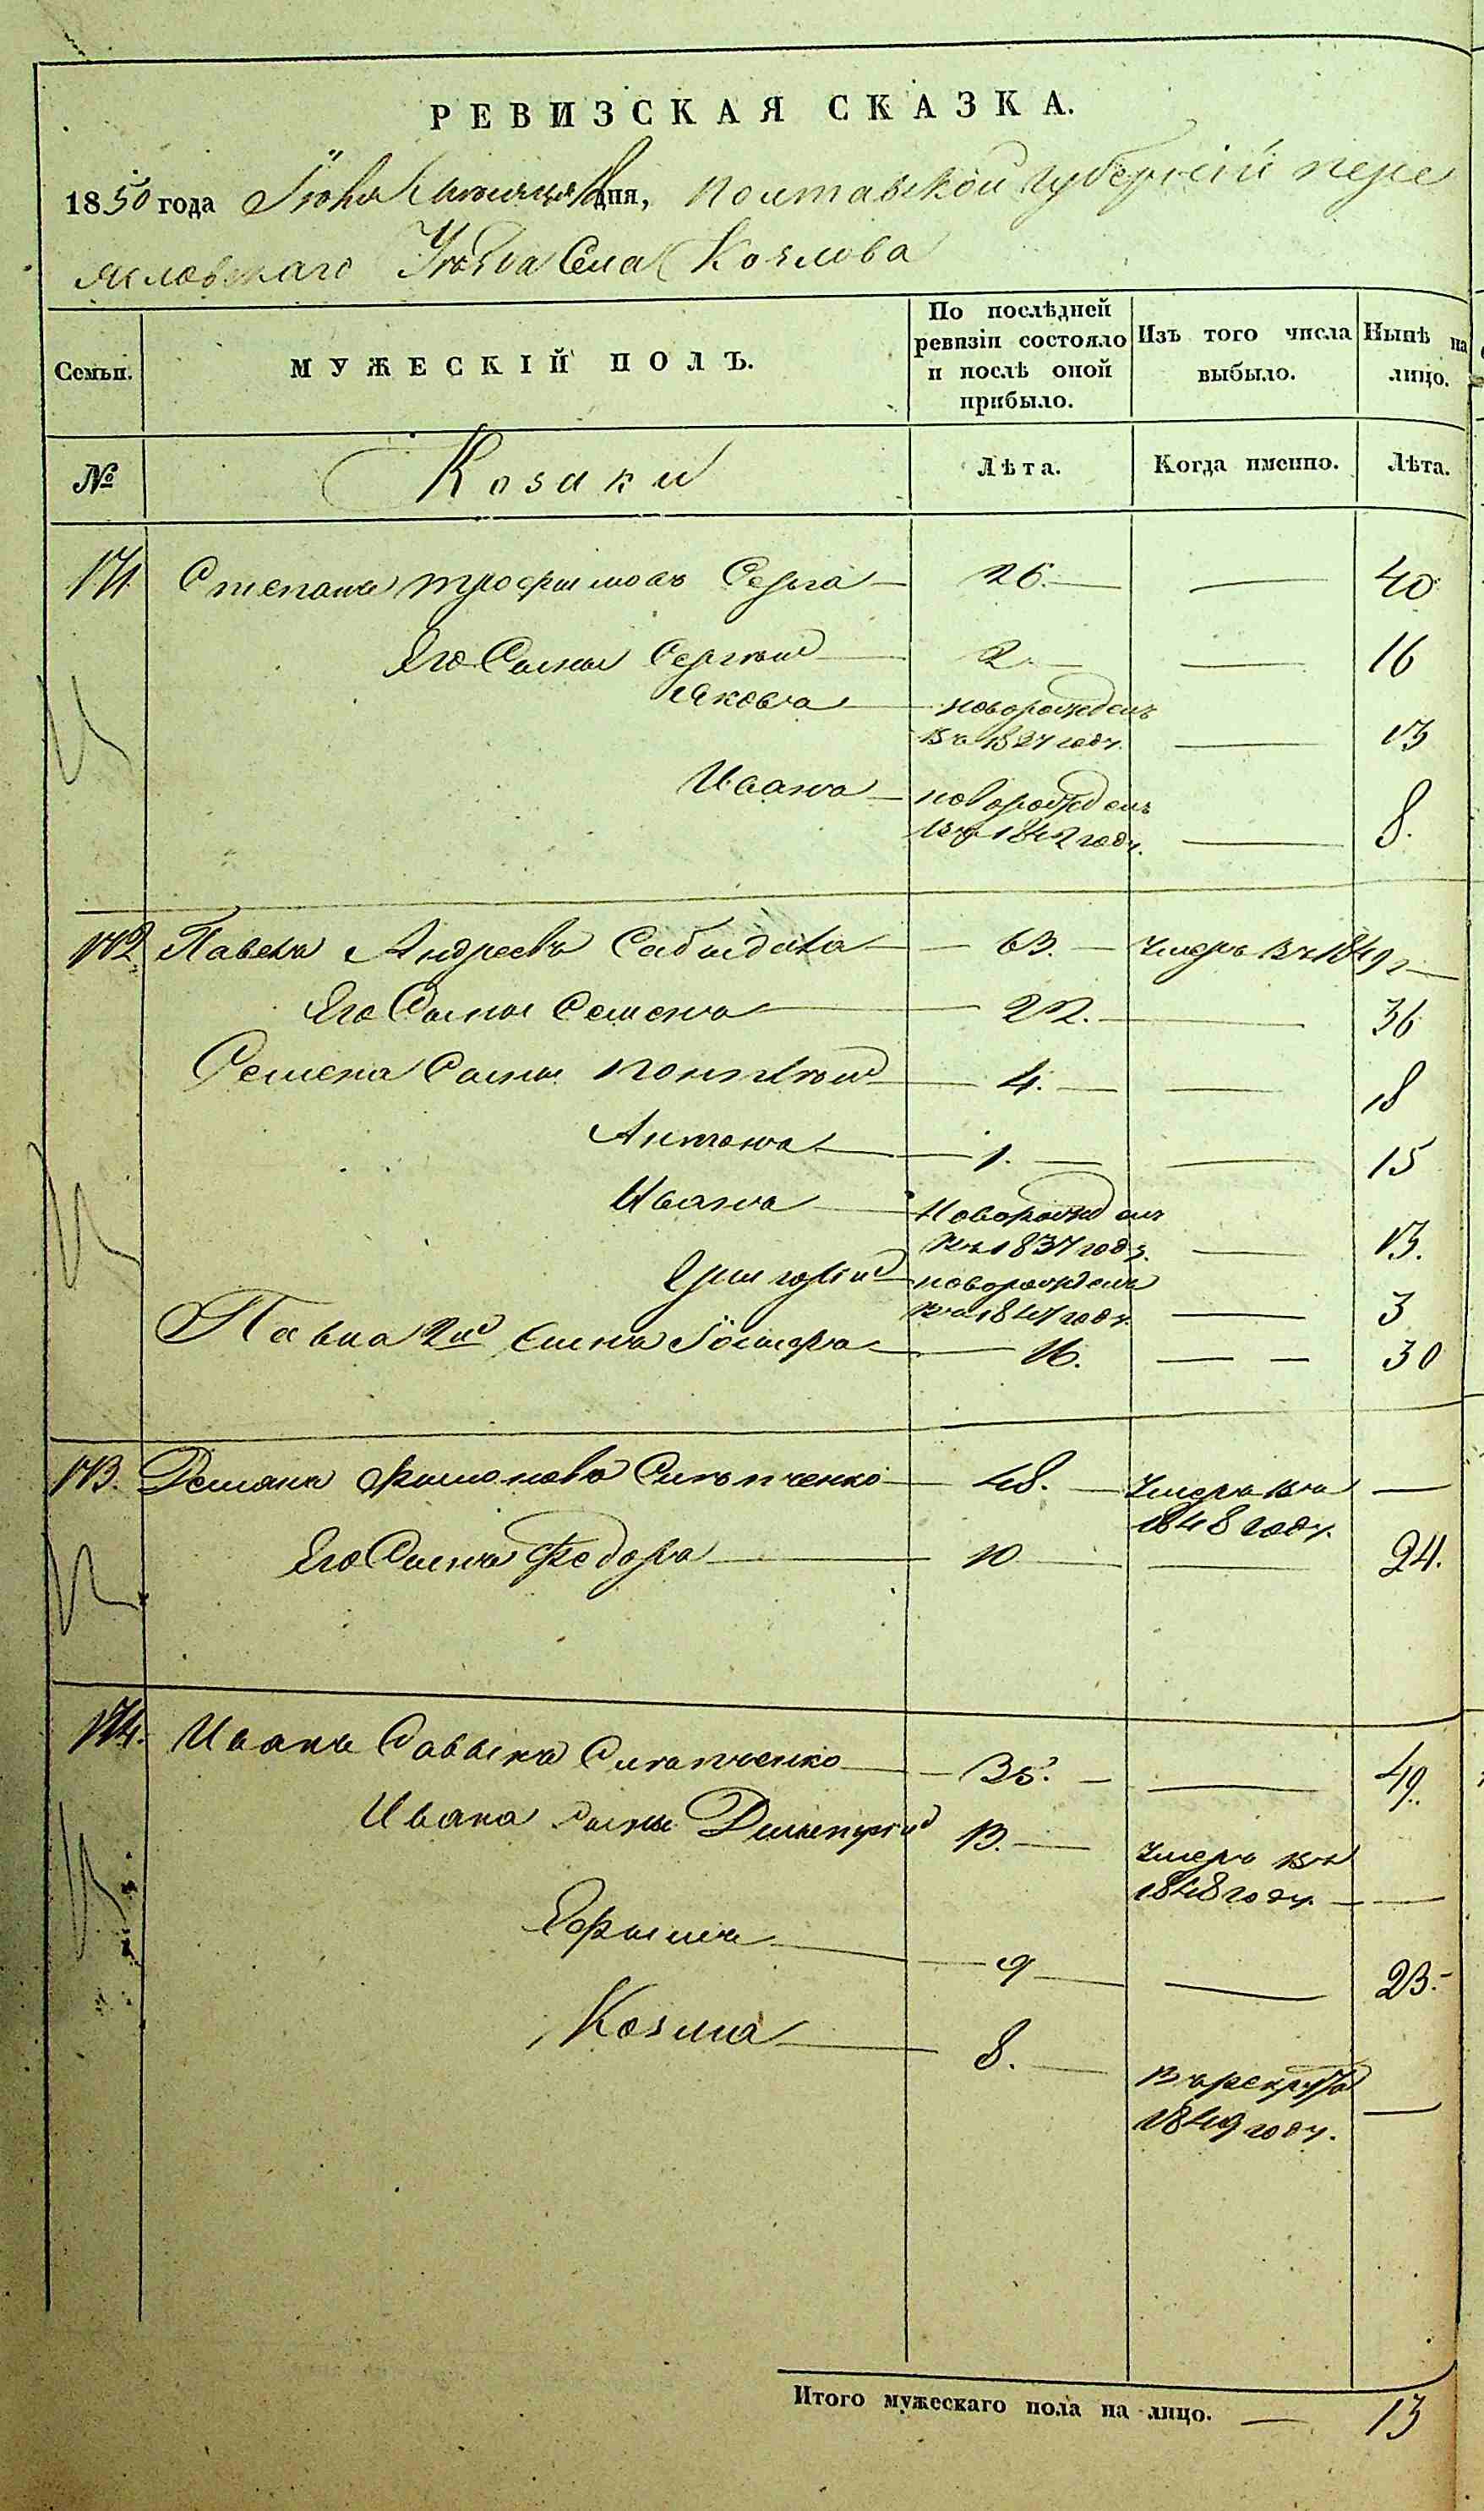 РЕВИЗСКАЯ СКАЗКА.
1850 года Июня дня, Полтавской Губерніи Пере
яславскаго Уѣзда Села Козлова
Семьи.
МУЖЕСКІЙ ПОЛЪ.
По послѣдней ревизіи состояло и послѣ оной прибыло.
Изъ того числа выбыло.
Нынѣ на лицо.
№
Козаки
Лѣта.
Когда именно.
Лѣта.
171. Степанъ Трофимовъ Серга 26. — 40
Его Сыны Сергѣй 2. — 16
Яковъ новорожденъ
въ 1837 году. — 13
Иванъ новорожденъ
въ 1842 году. — 8.
172. Павелъ Андреевъ 63. Умеръ въ 1849 г —
Его Сыны Семенъ 22. — 36
Семена Сыны 4. — 18
Антонъ 1. — 15
Иванъ Новорожденъ
въ 1837 году. — 13.
Григорій новорожденъ
въ 1847 году. — 3
Павла 2й Сынъ 16. — 30
173. Демянъ Филоновъ 48. Умеръ въ
1848 году. —
Его Сынъ Федоръ 10 — 24.
174. Иванъ Саввинъ 35. — 49.
Ивана Сыны Димитрій 13. Умеръ въ
1848 году. —
Ефимъ 9 — 23.
Козма 8. В рекруты
1849 году. —
Итого мужескаго пола на лицо. — 13